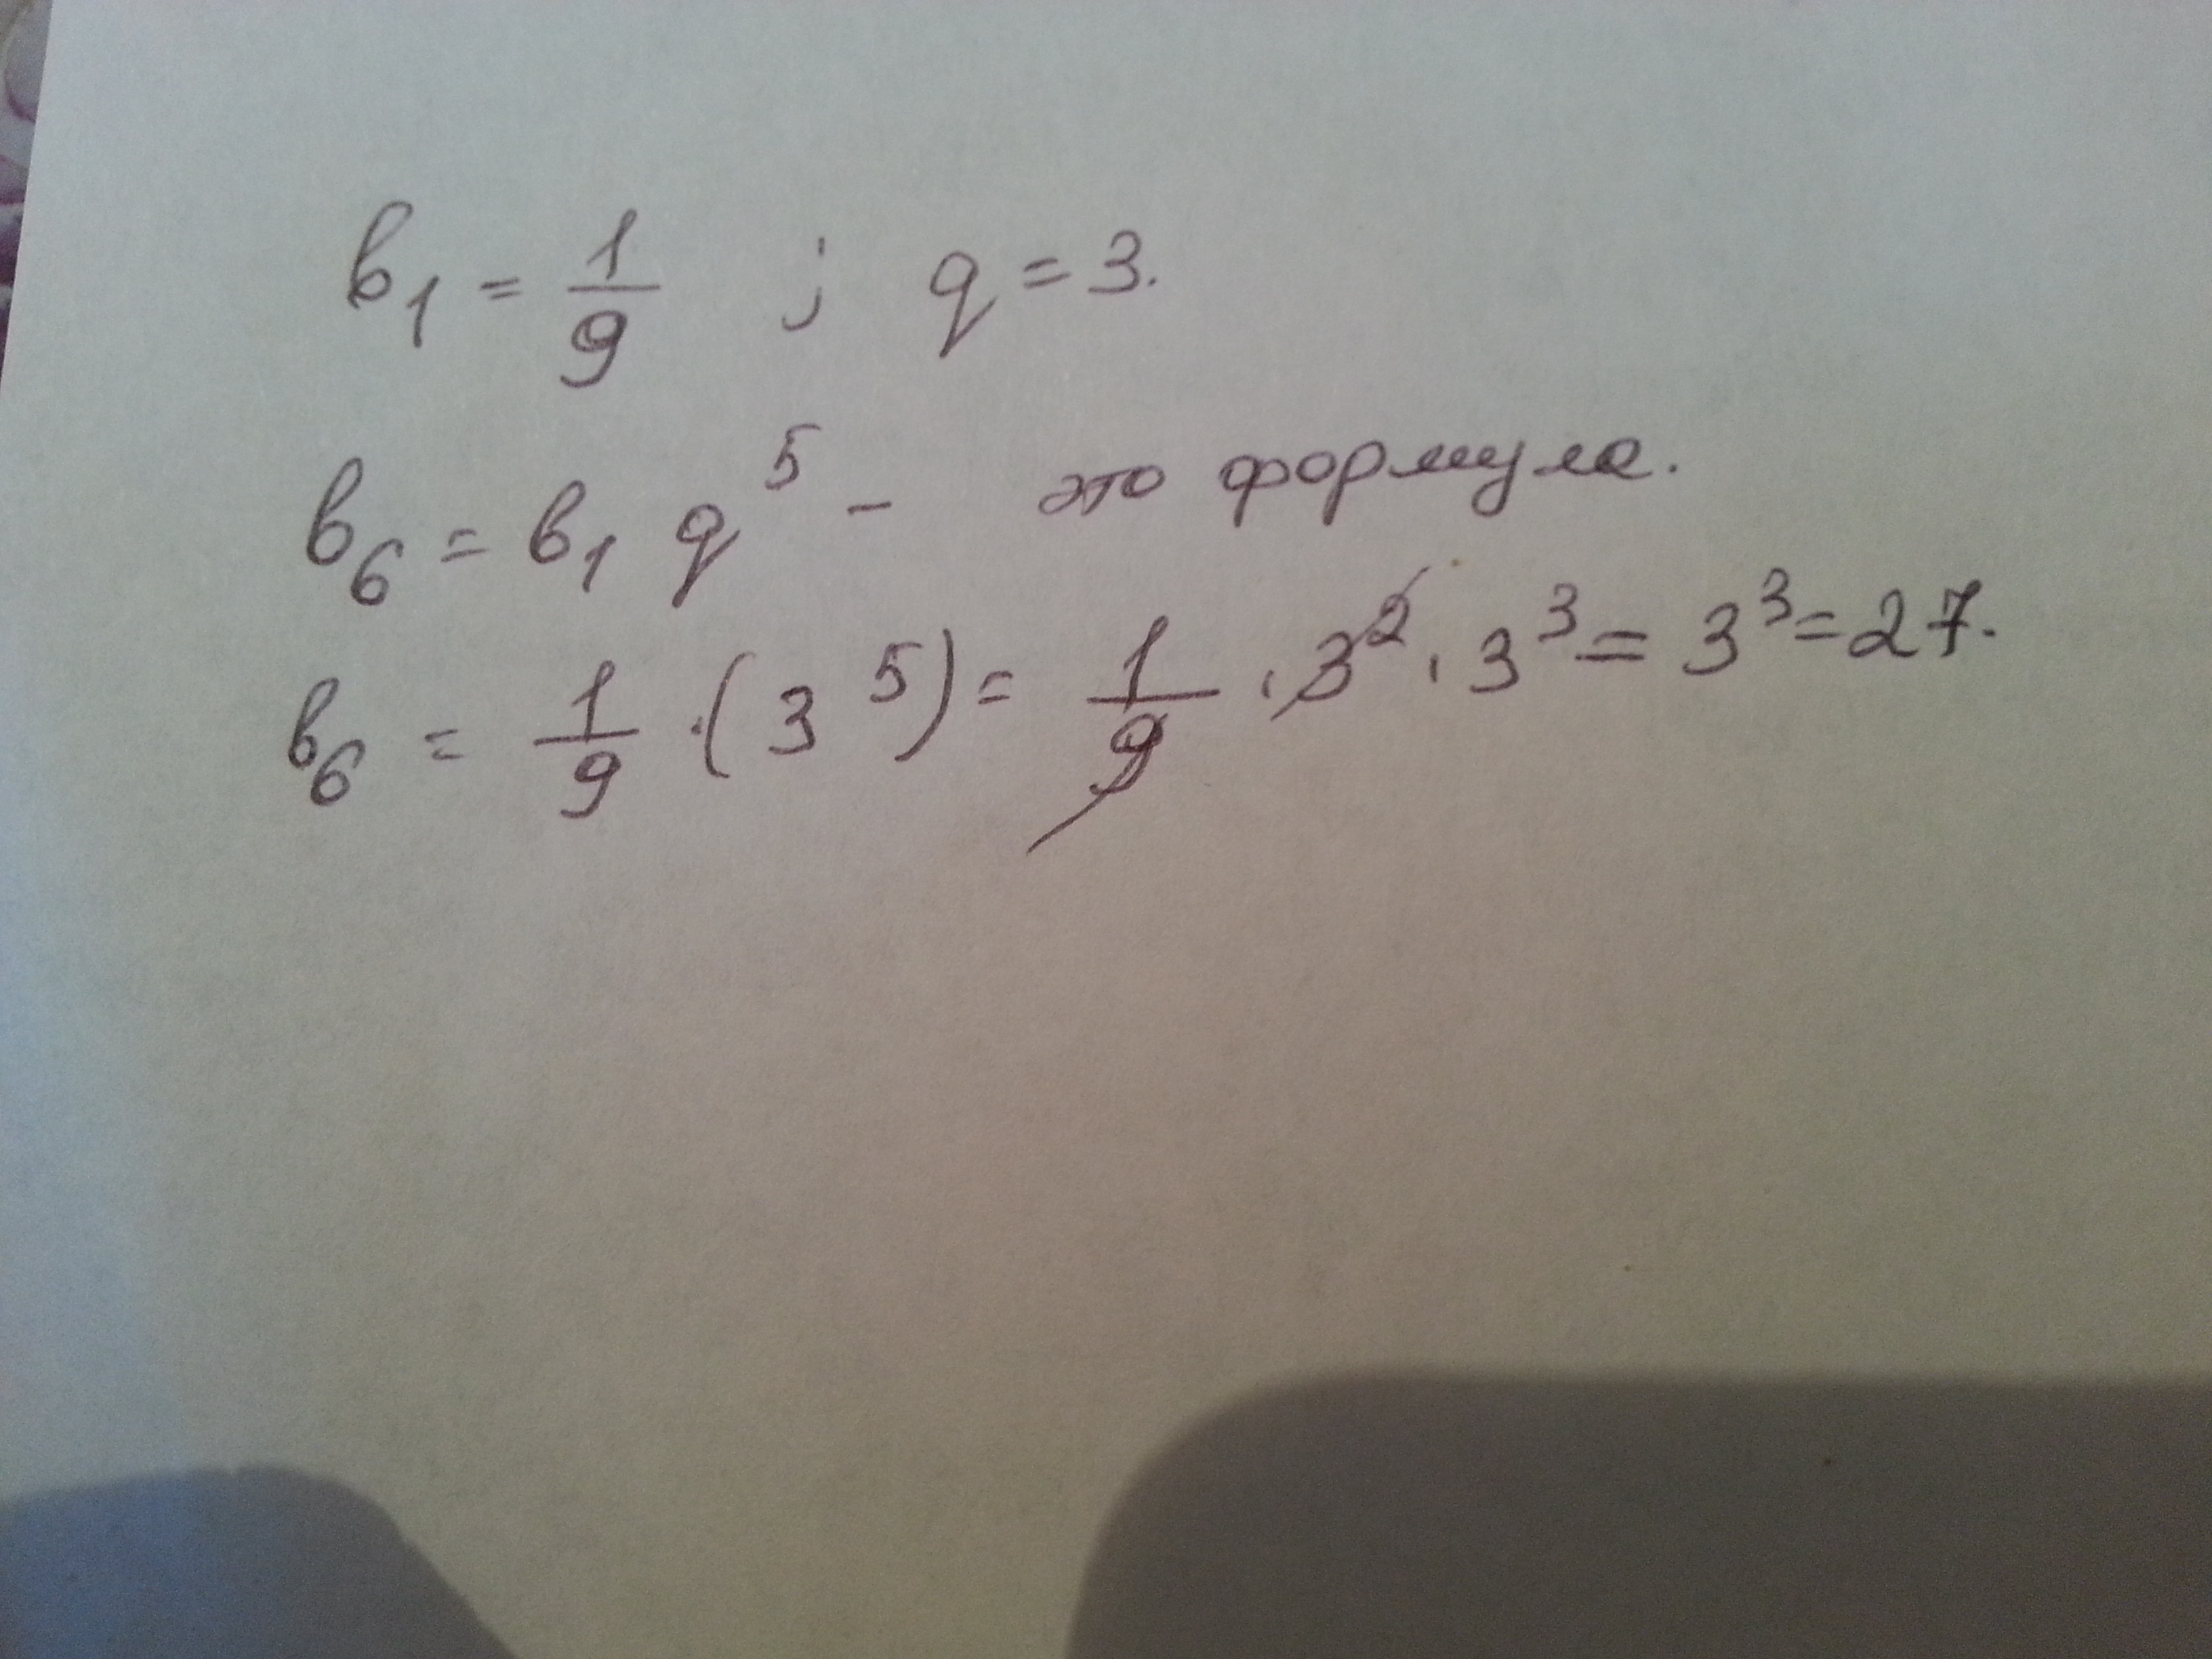 b₁ = 1/9 ; q = 3.
b₆ = b₁ q⁵ – это формула.
b₆ = 1/9 · (3⁵) = 1/9 · 3² · 3³ = 3³ = 27.